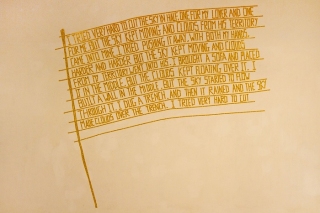 I TRIED VERY HARD TO CUT THE SKY IN HALF, ONE FOR MY LOVER AND ONE
FOR ME. BUT THE SKY KEPT MOVING AND CLOUDS FROM HIS TERRITORY
CAME INTO MINE. I TRIED PUSHING IT AWAY WITH BOTH MY HANDS,
HARDER AND HARDER. BUT THE SKY KEPT MOVING AND CLOUDS
FROM MY TERRITORY WENT INTO HIS. I BROUGHT A SOFA AND PLACED
IT IN THE MIDDLE. BUT THE CLOUDS KEPT FLOATING OVER IT. I
BUILT A WALL IN THE MIDDLE. BUT THE SKY STARTED TO FLOW
THROUGH IT. I DUG A TRENCH. AND THEN IT RAINED AND THE SKY
MADE CLOUDS OVER THE TRENCH. I TRIED VERY HARD TO CUT